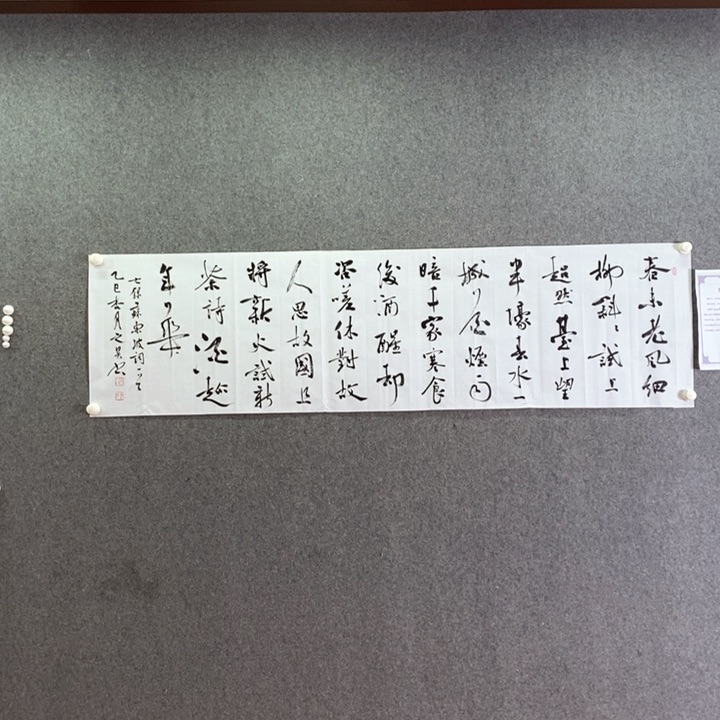 春未老風細
柳斜〻試上
超然臺上望
半壕春水一
城花煙雨
暗千家寒食
後酒醒却
咨嗟休對故
人思故國且
將新火試新
茶詩酒趁
年華
蘇東坡詞
乙巳春月